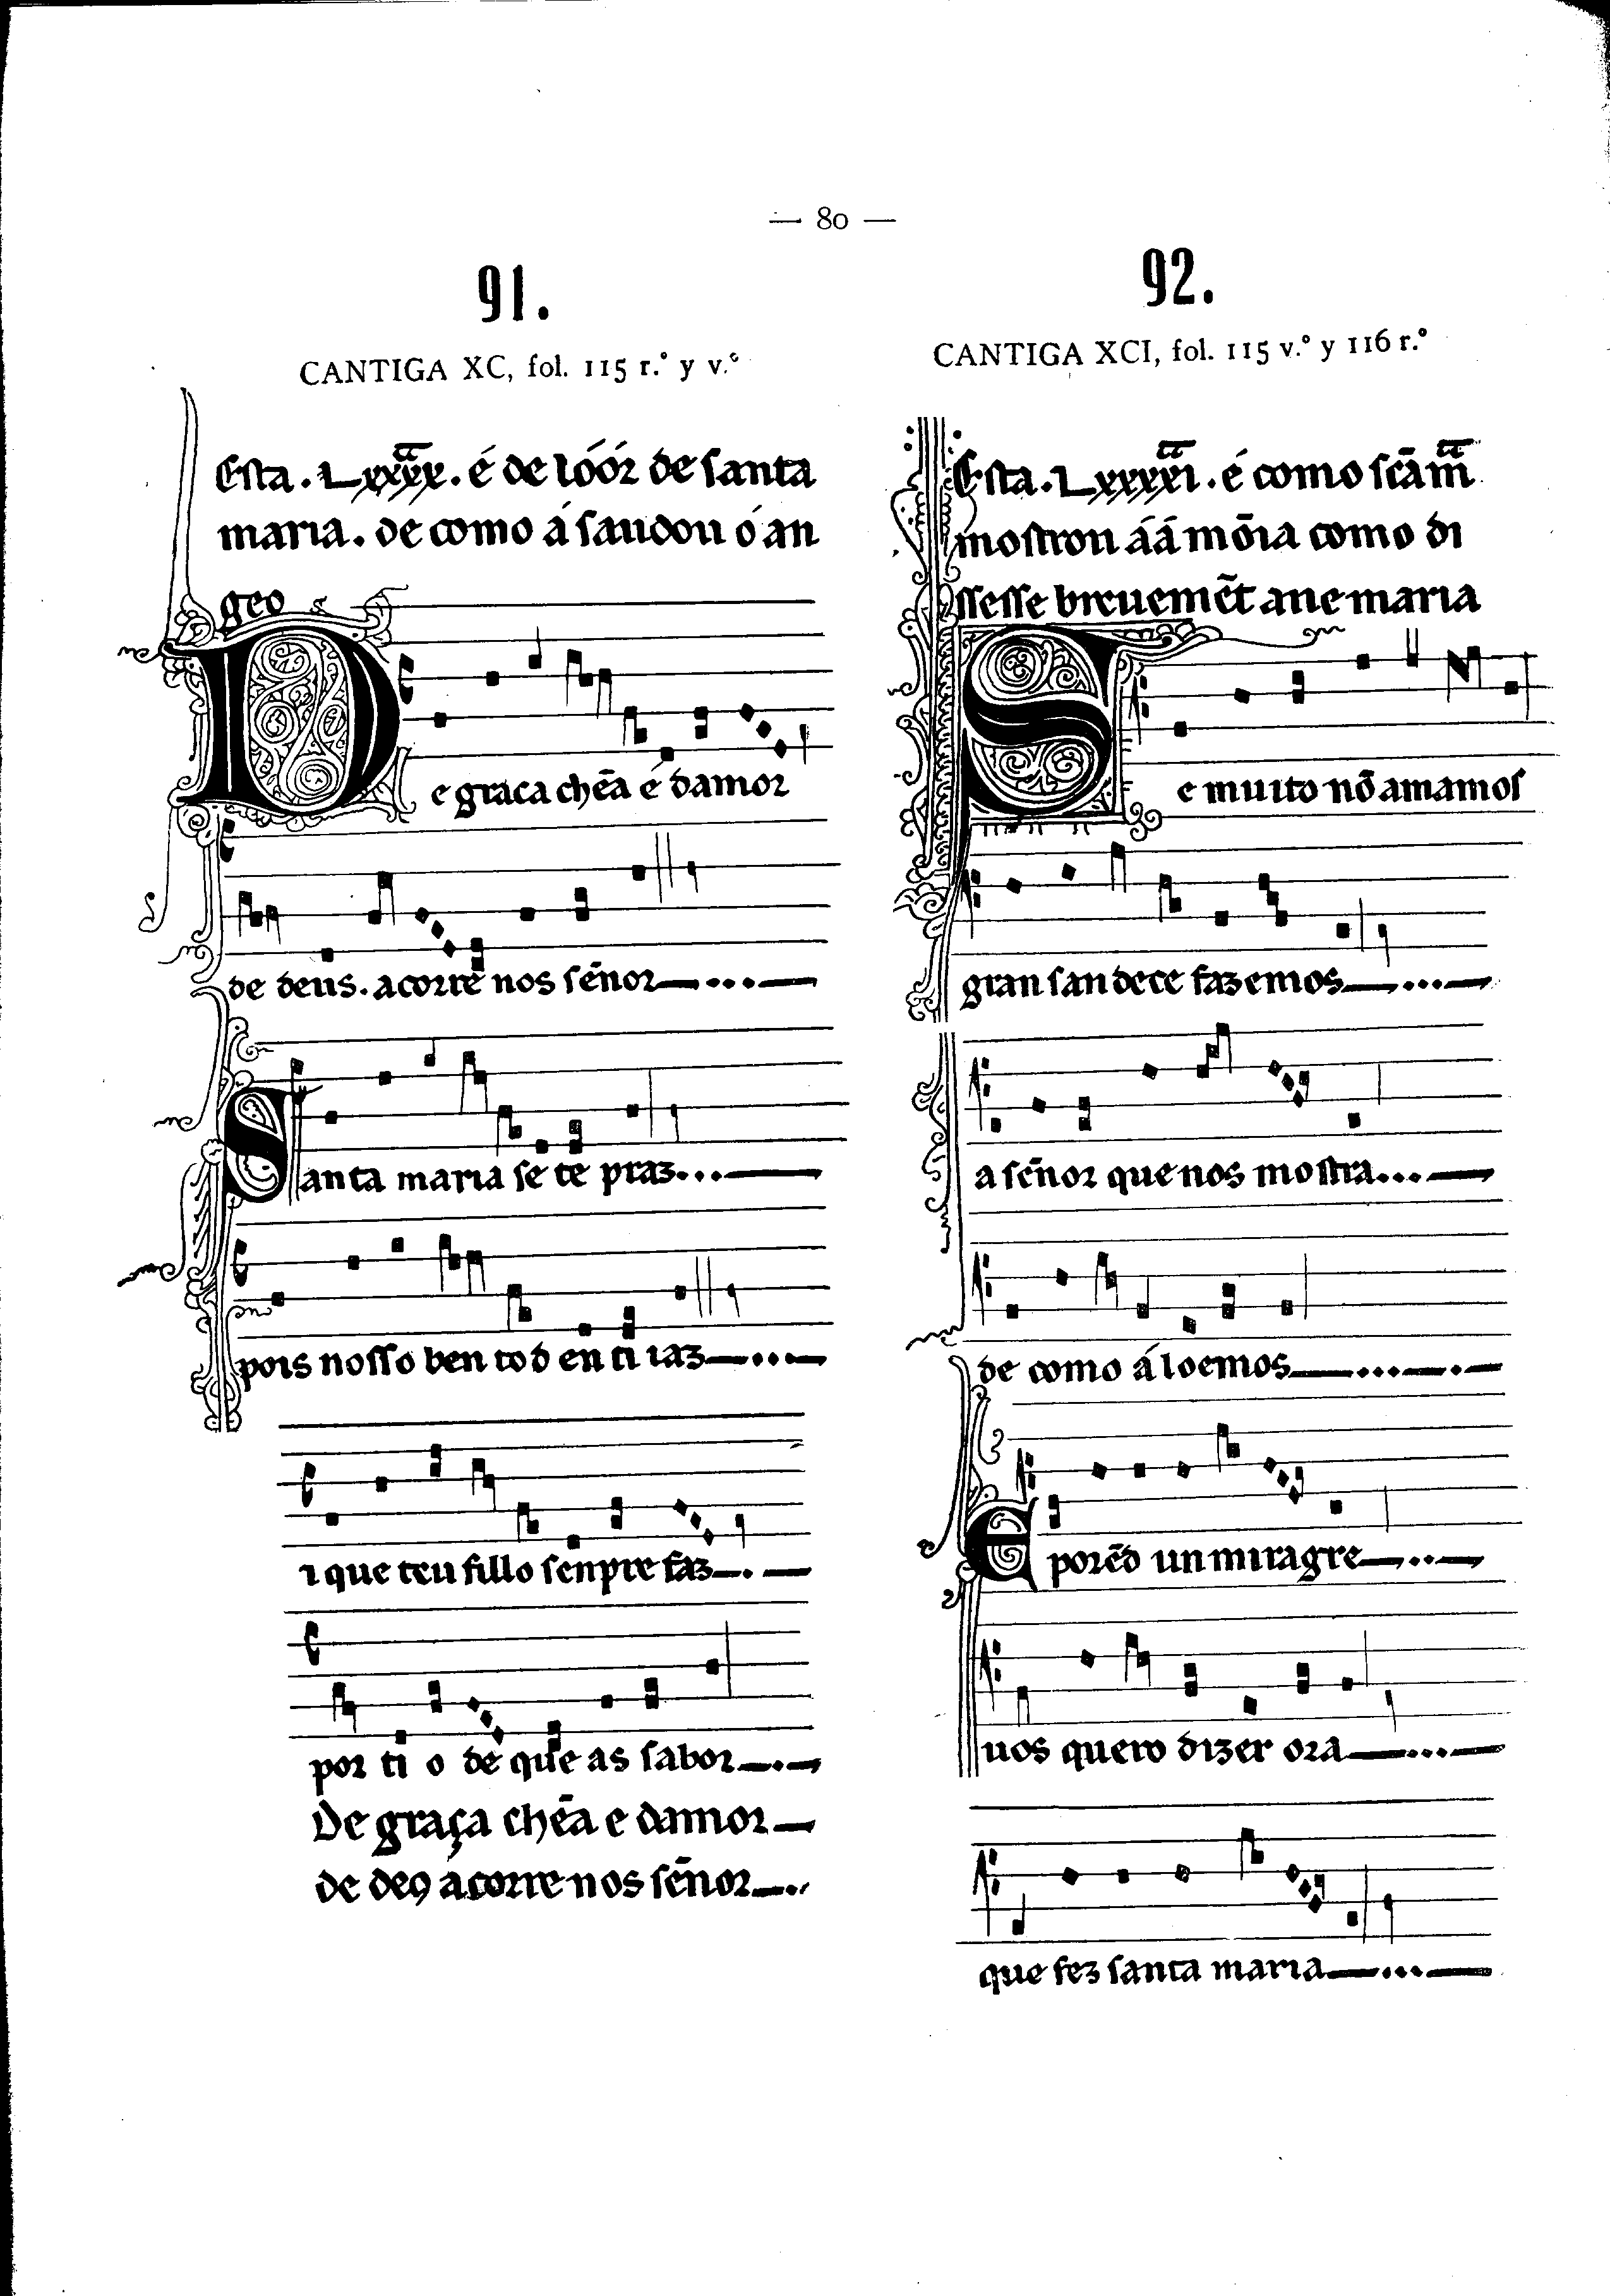 — 80 —
91.
CANTIGA XC, fol. 115 r.º y v.º
Esta . Lxxxxͣ . é de lóór de santa
maria . de como á saudou ó an
geo
De graca chēa é damor
de deus . acorre nos sēnor
Santa maria se te praz...
pois nosso ben tod en ti iaz
i que teu fillo senpre faz
por ti o de que as sabor
De graça chēa e damor
de de9 acorre nos sēnor
92.
CANTIGA XCI, fol. 115 v.º y 116 r.º
Esta . Lxxxxiͣ . é como scā mͣ
mostrou áá mōia como di
ssesse breuemēt aue maria
Se muito nō amamos
gran sandece fazemos
a sēnor que nos mostra...
de como á loemos
E porēd un miragre
uos quero dizer ora
que fez santa maria